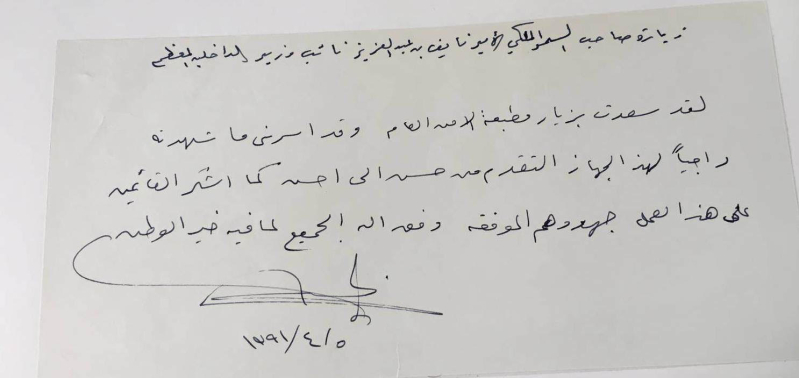 زيارة صاحب السمو الملكي الأمير نايف بن عبد العزيز نائب وزير الداخلية المعظم
لقد سعدت بزيار مطبعة الامن العام وقد اسرني ما شهدته
راجياً لهذ الجهاز التقدم من حسن الى احسن كما اشكر القائمين
على هذا العمل جهودهم الموفقه وفق الله الجميع لما فيه خير الوطن
١٣٩١/٤/٥